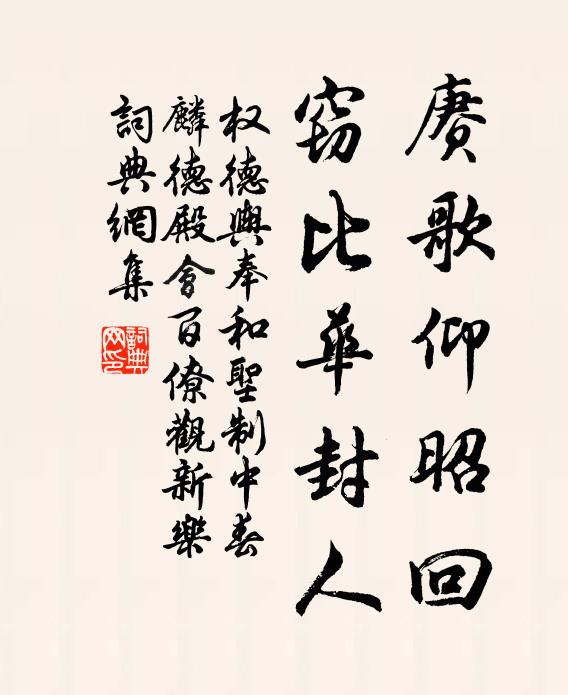 赓歌仰昭回
窃比华封人
权德舆奉和聖制中春
麟德殿会百僚觀新樂
詞典網集
詞典网印